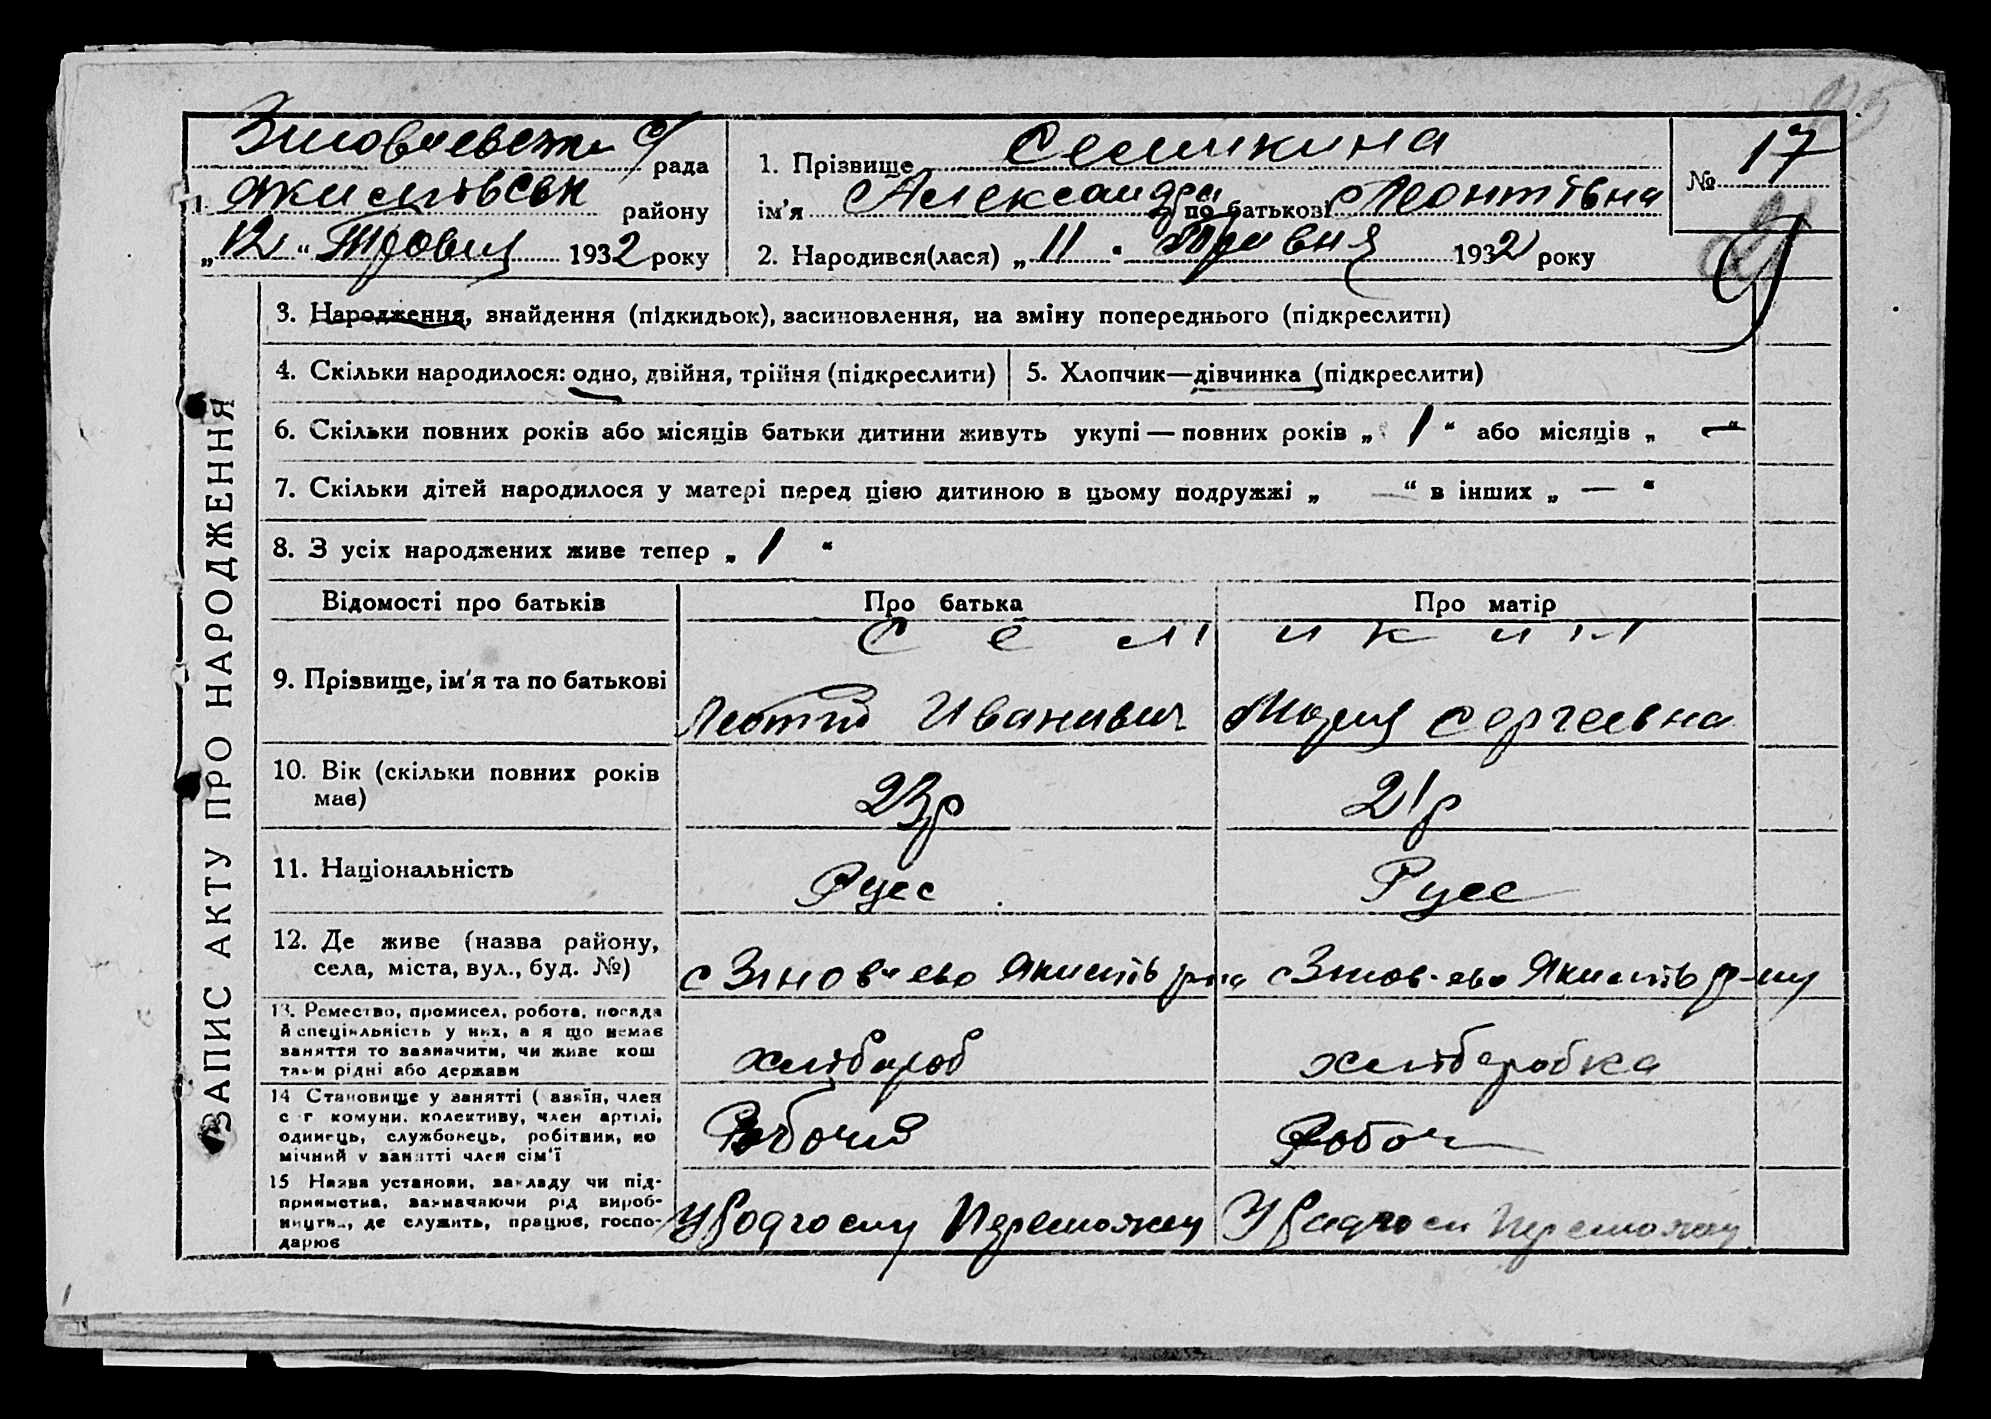 Зіновиевська с/рада
Якимівськ району
„12“ Травня 1932 року
1. Прізвище Семикина
ім'я Александра по батькові Леонтівна
2. Народився(лася) „11“ Травня 1932 року
№ 17
ЗАПИС АКТУ ПРО НАРОДЖЕННЯ
3. Народження, знайдення (підкидьок), засиновлення, на зміну попереднього (підкреслити)
4. Скільки народилося: одно, двійня, трійня (підкреслити)
5. Хлопчик—дівчинка (підкреслити)
6. Скільки повних років або місяців батьки дитини живуть укупі — повних років „1“ або місяців „—“
7. Скільки дітей народилося у матері перед цією дитиною в цьому подружжі „—“ в інших „—“
8. З усіх народжених живе тепер „1“
Відомості про батьків
Про батька
Про матір
Семикини
9. Прізвище, ім'я та по батькові
Леотий Иванавич
Мария Сергеевна
10. Вік (скільки повних років
має)
23р
21р
11. Національність
Русс
Русс
12. Де живе (назва району,
села, міста, вул., буд. №)
с Зиновиево Якимів р-на
с Зинов-ево Якимів р-ну
13. Ремество, промисел, робота, посада
й спеціяльність у них, а я що немає
заняття то зазначити, чи живе кош
тами рідні або держави
хлібороб
хліборобка
14 Становище у занятті (хазяїн, член
с г комуни, колективу, член артілі,
одинець, службовець, робітник, по
мічний у занятті член сім'ї
Рабочий
Рабоч
15 Назва установи, закладу чи під-
приємства, зазначаючи рід вироб-
ництва, де служить, працює, госпо-
дарює
У Радгоспу
У Радгосп